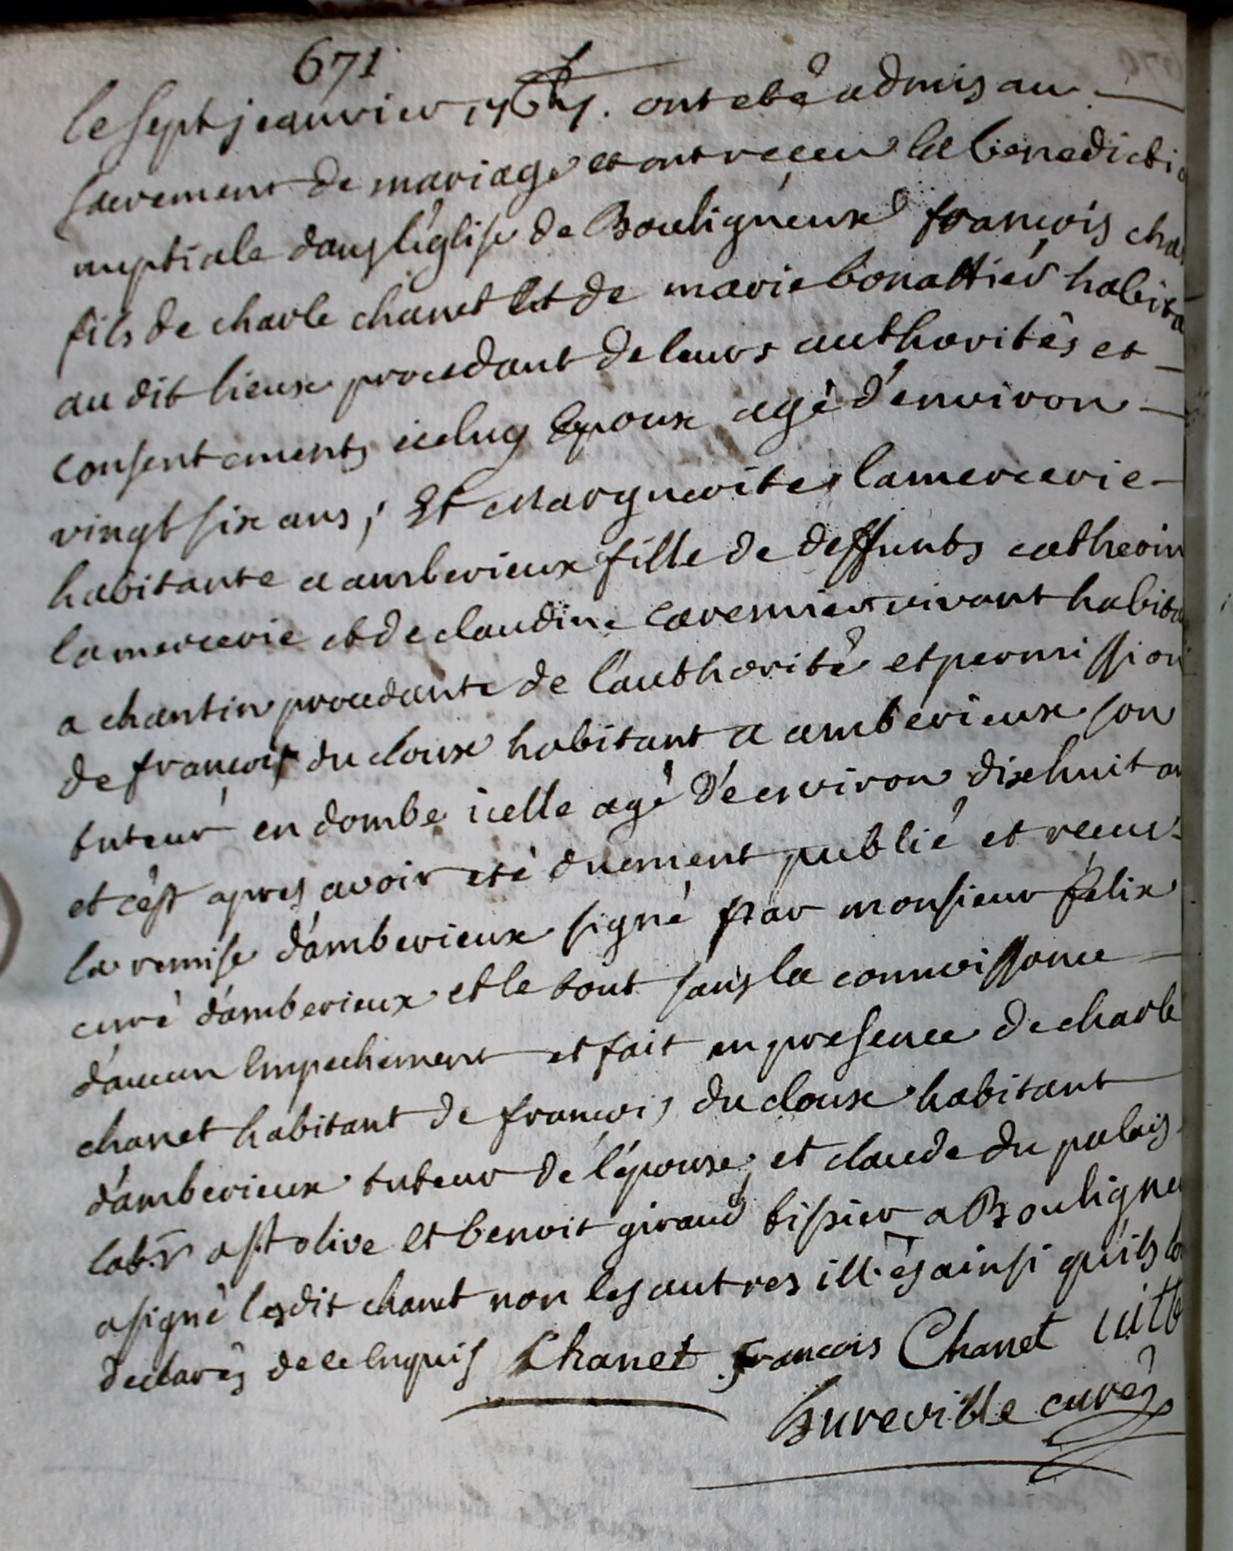 671
le sept jeanvier ont eté admis au
sacrement de mariage et ont reçeu la benedicti
nuptiale dans l'eglise de Bouligneux françois cha
fils de charle chanet Et de marie bonattier habita
au dit lieux procedant de leurs authorités et
consentements iceluy Epoux agé d'environ
vingt six ans, Et Marguerite lamercerie
habitante a amberieux fille de deffunts catherin
lamercerie et de claudine vivant habita
a chantin procedante de l'authorité et permission
de françois du cloux habitant a amberieux son
tuteur en dombe icelle agé d'environ dixhuit an
et c'est apres avoir eté duement publié et receu
la remise d'amberieux signé par monsieur félix
curé d'amberieux et le tout sans la connoissance
d'aucun Empechement et fait en presence de charle
chanet habitant de françois du cloux habitant
d'amberieux tuteur de l'épouse, et claude du palais
labr a st olive et benoit giraud tissier a Bouligneu
a signé lesdit chanet non les autres ill.és ainsi qu'ils lo
declarés de ce Enquis Chanet françois Chanet
Bureville curé